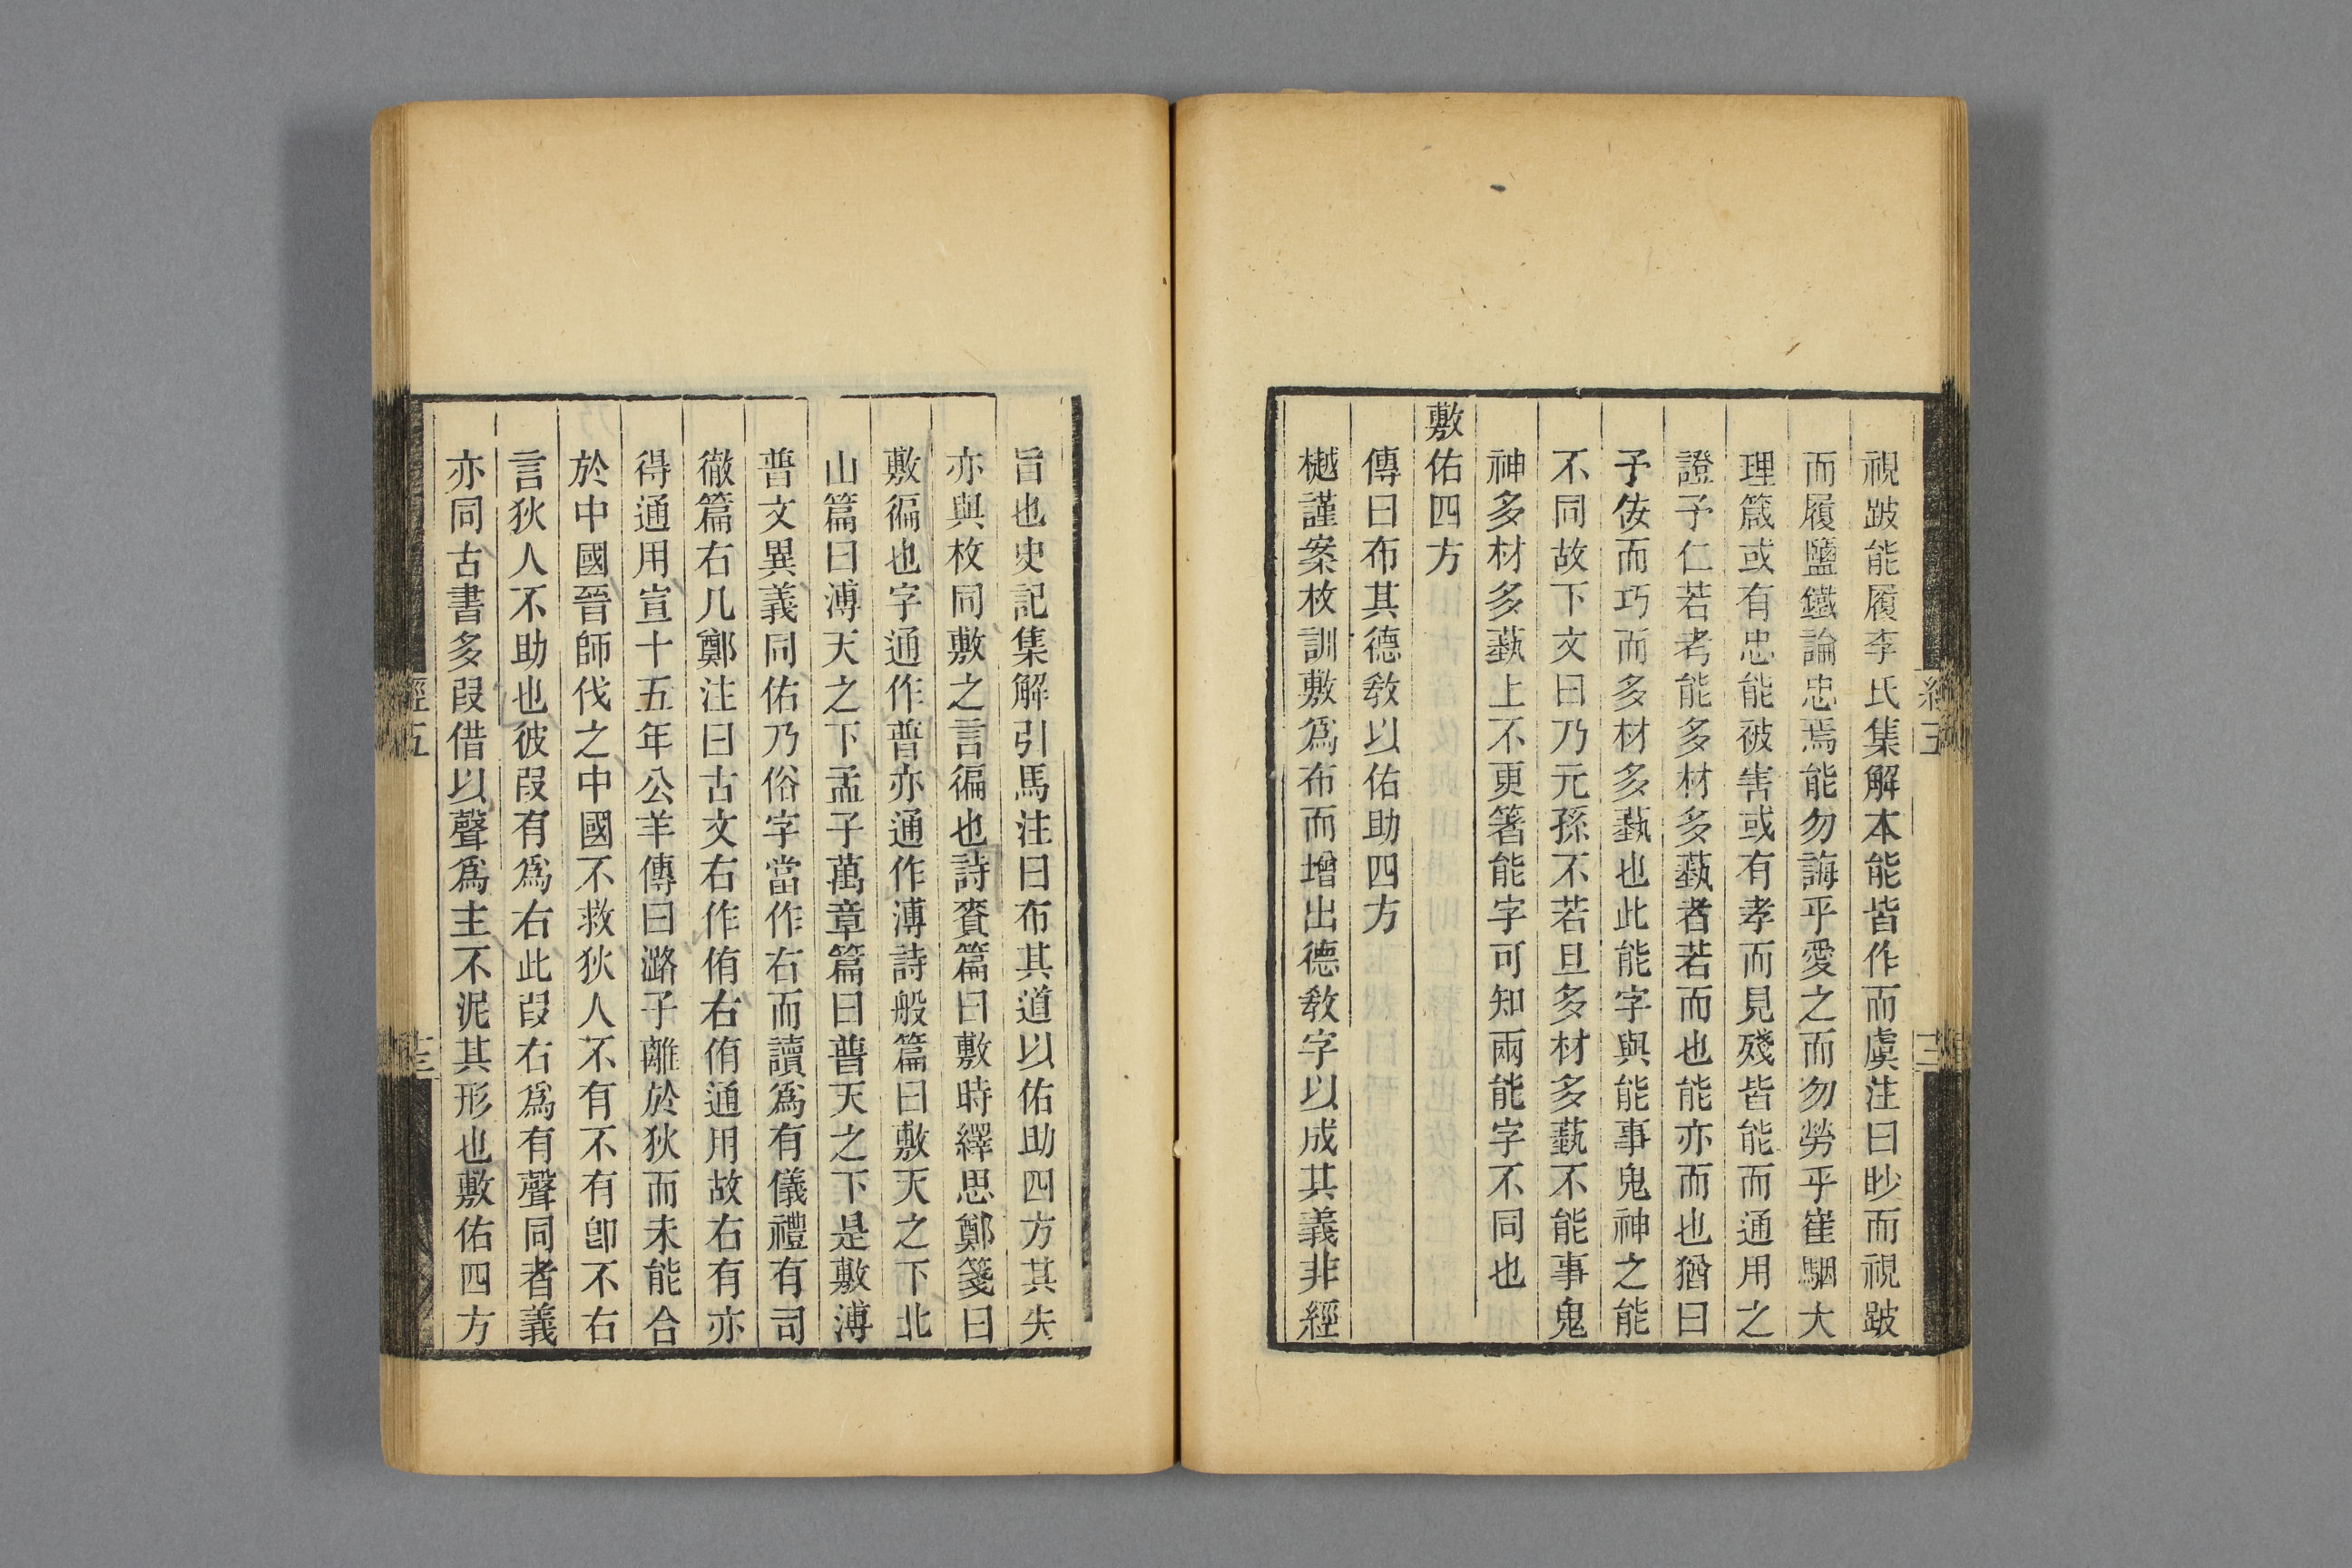 視跛能履李氏集解本能皆作而虞注曰眇而視跛
而履鹽鐵論忠焉能勿誨乎愛之而勿勞乎崔駰大
理箴或有忠能被害或有孝而見殘皆能而通用之
證予仁若考能多材多蓺者若而也能亦而也猶曰
予佞而巧而多材多蓺也此能字與能事鬼神之能
不同故下文曰乃元孫不若旦多材多蓺不能事鬼
神多材多蓺上不更箸能字可知兩能字不同也
敷佑四方
傳曰布其德敎以佑助四方
樾謹案枚訓敷爲布而增出德敎字以成其義非經
旨也史記集解引馬注曰布其道以佑助四方其失
亦與枚同敷之言徧也詩賚篇曰敷時繹思鄭箋曰
敷徧也字通作普亦通作溥詩般篇曰敷天之下北
山篇曰溥天之下孟子萬章篇曰普天之下是敷溥
普文異義同佑乃俗字當作右而讀爲有儀禮有司
徹篇右几鄭注曰古文右作侑右侑通用故右有亦
得通用宣十五年公羊傳曰潞子離於狄而未能合
於中國晉師伐之中國不救狄人不有不有卽不右
言狄人不助也彼叚有爲右此叚右爲有聲同者義
亦同古書多叚借以聲爲主不泥其形也敷佑四方
經五